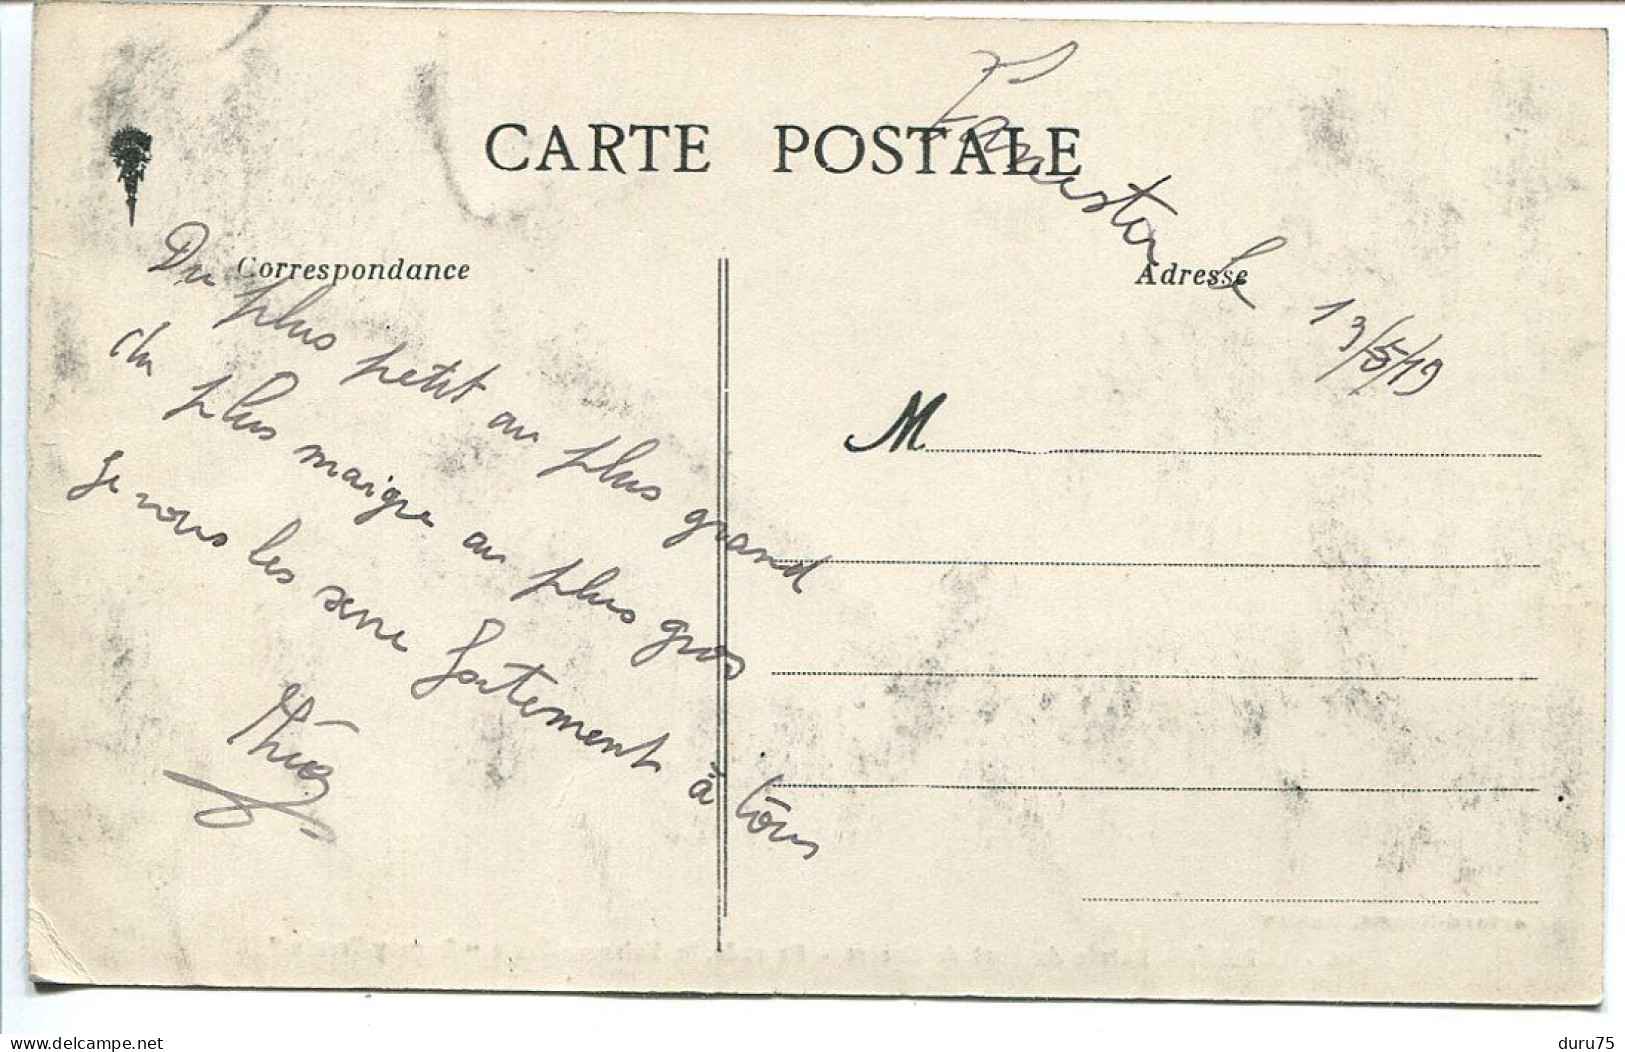 CARTE POSTALE
Lannester le 13/5/19
Correspondance
Adresse
Du plus petit au plus grand
du plus maigre au plus gros
Je vous les serre fortement à tous
M
delcampe.net
duru75